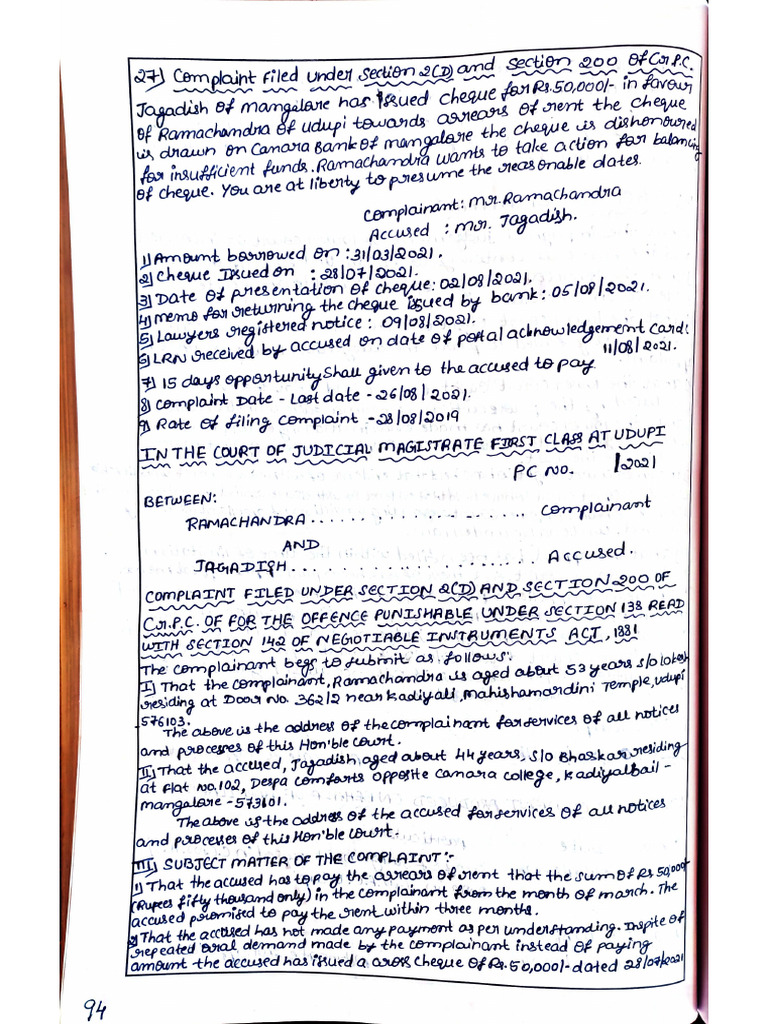 27) Complaint Filed under Section 2(D) and Section 200 of Cr.P.C.
Jagadish of mangalore has issued cheque for Rs.50,000/- in favour
of Ramachandra of udupi towards arrears of rent the cheque
is drawn on Canara Bank of mangalore the cheque is dishonoured
for insufficient funds. Ramachandra wants to take action for balancing
of cheque. You are at liberty to presume the reasonable dates.
Complainant: Mr. Ramachandra
Accused : Mr. Jagadish.
1) Amount borrowed on : 31/03/2021.
2) Cheque Issued on : 28/07/2021.
3) Date of presentation of cheque: 02/08/2021.
4) Memo for returning the cheque issued by bank: 05/08/2021.
5) Lawyers registered notice: 09/08/2021.
6) LRN received by accused on date of postal acknowledgement card:
11/08/2021.
7) 15 days opportunity Shall given to the accused to pay
8) Complaint Date - Last date - 26/08/2021.
9) Rate of filing Complaint - 28/08/2019
IN THE COURT OF JUDICIAL MAGISTRATE FIRST CLASS AT UDUPI
PC NO. /2021
BETWEEN:
RAMACHANDRA .................... Complainant
AND
JAGADISH .................... Accused.
COMPLAINT FILED UNDER SECTION 2(D) AND SECTION 200 OF
Cr.P.C. OF FOR THE OFFENCE PUNISHABLE UNDER SECTION 138 READ
WITH SECTION 142 OF NEGOTIABLE INSTRUMENTS ACT, 1881
The complainant begs to submit as follows:
I) That the complainant, Ramachandra is aged about 53 years s/o lokesh
residing at Door No. 362/2 near Kadiyali, Mahishamardini Temple, udupi
576103.
The above is the address of the complainant for services of all notices
and processes of this Hon'ble court.
II) That the accused, Jagadish aged about 44 years, s/o Bhaskar residing
at Flat no.102, Despa comforts opposite canara college, Kadiyalbail -
mangalore - 573601.
The above is the address of the accused for services of all notices
and processes of this Hon'ble court.
III) SUBJECT MATTER OF THE COMPLAINT:-
1) That the accused has to pay the arrears of rent that the sum of Rs 50,000/-
(Rupees fifty thousand only) in the complainant from the month of march. The
accused promised to pay the rent within three months.
2) That the accused has not made any payment as per understanding. Inspite of
repeated oral demand made by the complainant instead of paying
amount the accused has issued a cross cheque of Rs.50,000/- dated 28/07/2021
94